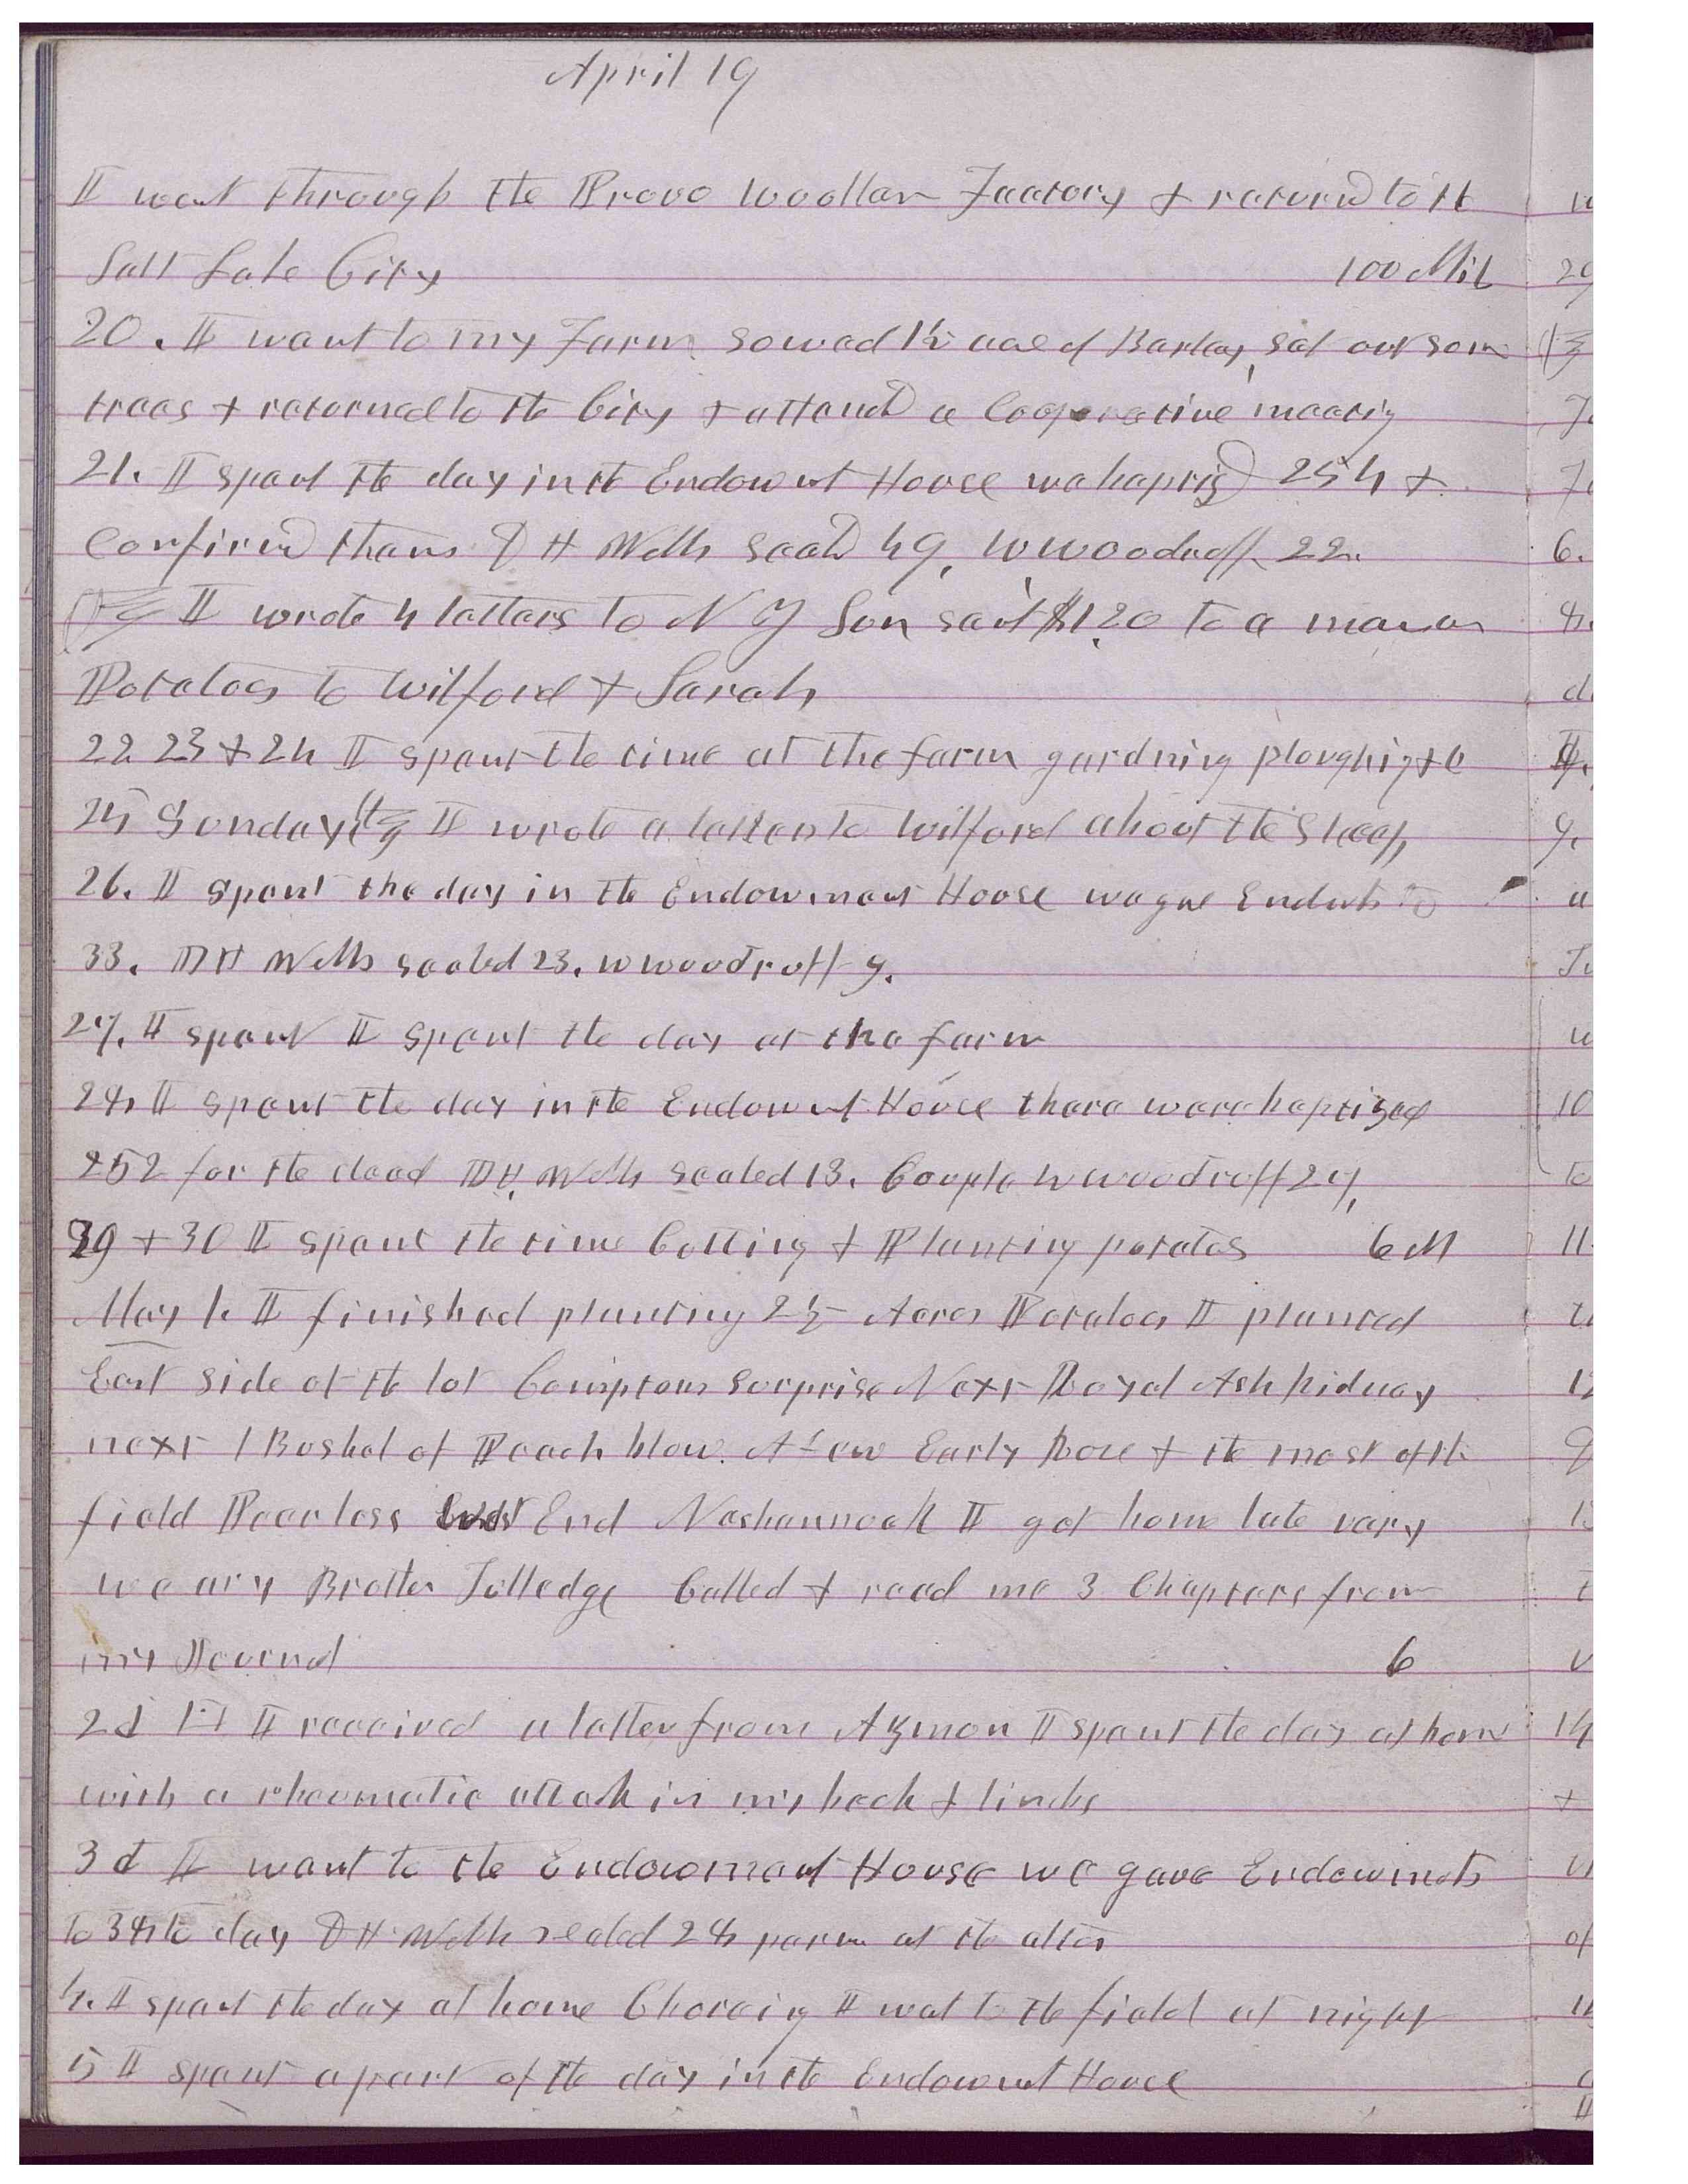 April 19
I went through the Provo Woollen Factory & returned to the
Salt Lake City 100 Mile
20. I went to my Farm sowed 1½ acre of Barley, set out some
trees & returned to the City & attend a Cooperative meeting
21. I spent the day in the Endowmt House we baptized 254 &
Confirmd them D H Wells seald 49, W Woodruff 22.
I wrote 4 letters to N Y Sun sent $1.20 to a man on
Potatoes to Wilford & Sarah
22 23 & 24 I spent the time at the farm gardning ploughing &c
25 Sunday I wrote a letter to Wilford about the Sheep,
26. I spent the day in the Endowment House we gave Endmts to
33. D H Wells sealed 23. W Woodruff 9.
27. I spent I spent the day at the farm
28, I spent the day in the Endowmt House there were baptized
252 for the dead D H. Wells sealed 13. Couple W Woodruff 27,
29 & 30 I spent the time Cutting & Planting potatoes 6 M
May 1. I finished planting 2½ Acres Potatoes I planted
East side of the lot Comptons Surprise Next Royal Ash Kidney
next 1 Bushel of Peach blow. A few Early Rose & the most of the
field Peerless West End Neshannock I got home late very
weary Brother Tulledge Called & read me 3 Chapters from
my Journal 6
2d I received a letter from Azmon I spent the day at home
with a rheumatic attack in my back & limbs
3d I went to the Endowment House we gave Endowmets
to 38 to day D H Wells sealed 28 at the alter
4. I spent the day at home Choreing I wet to the field at night
5 I spent a part of the day in the Endowmt House